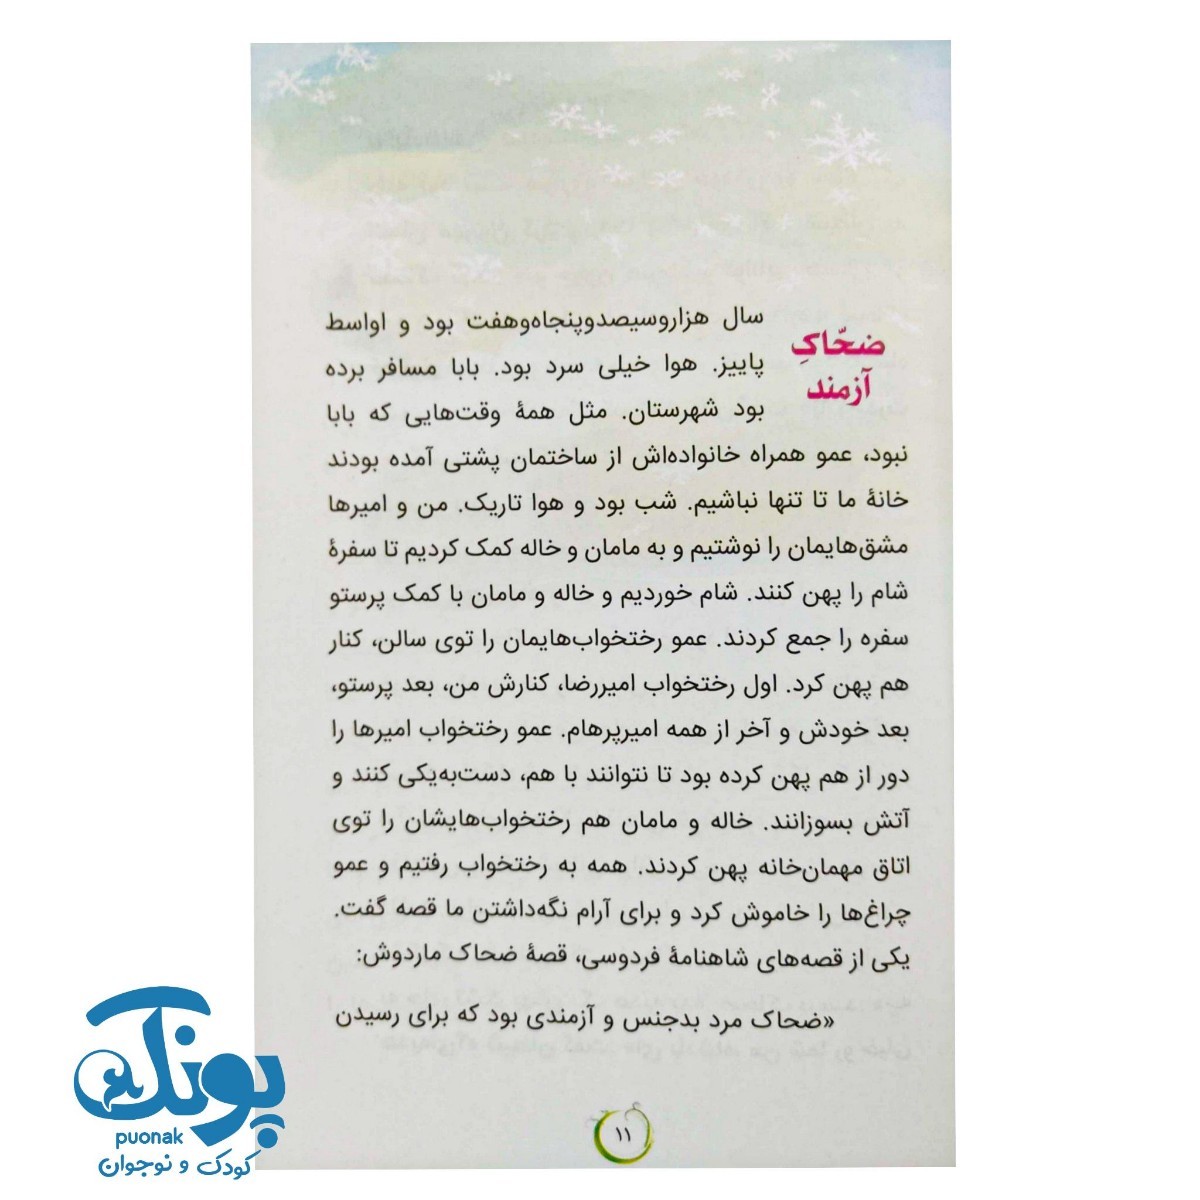 ضحّاکِ
آزمند
سال هزاروسیصدوپنجاه‌وهفت بود و اواسط
پاییز. هوا خیلی سرد بود. بابا مسافر برده
بود شهرستان. مثل همهٔ وقت‌هایی که بابا
نبود، عمو همراه خانواده‌اش از ساختمان پشتی آمده بودند
خانهٔ ما تا تنها نباشیم. شب بود و هوا تاریک. من و امیرها
مشق‌هایمان را نوشتیم و به مامان و خاله کمک کردیم تا سفرهٔ
شام را پهن کنند. شام خوردیم و خاله و مامان با کمک پرستو
سفره را جمع کردند. عمو رختخواب‌هایمان را توی سالن، کنار
هم پهن کرد. اول رختخواب امیررضا، کنارش من، بعد پرستو،
بعد خودش و آخر از همه امیرپرهام. عمو رختخواب امیرها را
دور از هم پهن کرده بود تا نتوانند با هم، دست‌به‌یکی کنند و
آتش بسوزانند. خاله و مامان هم رختخواب‌هایشان را توی
اتاق مهمان‌خانه پهن کردند. همه به رختخواب رفتیم و عمو
چراغ‌ها را خاموش کرد و برای آرام نگه‌داشتن ما قصه گفت.
یکی از قصه‌های شاهنامهٔ فردوسی، قصهٔ ضحاک ماردوش:
«ضحاک مرد بدجنس و آزمندی بود که برای رسیدن
۱۱
پونک
puonak
کودک و نوجوان